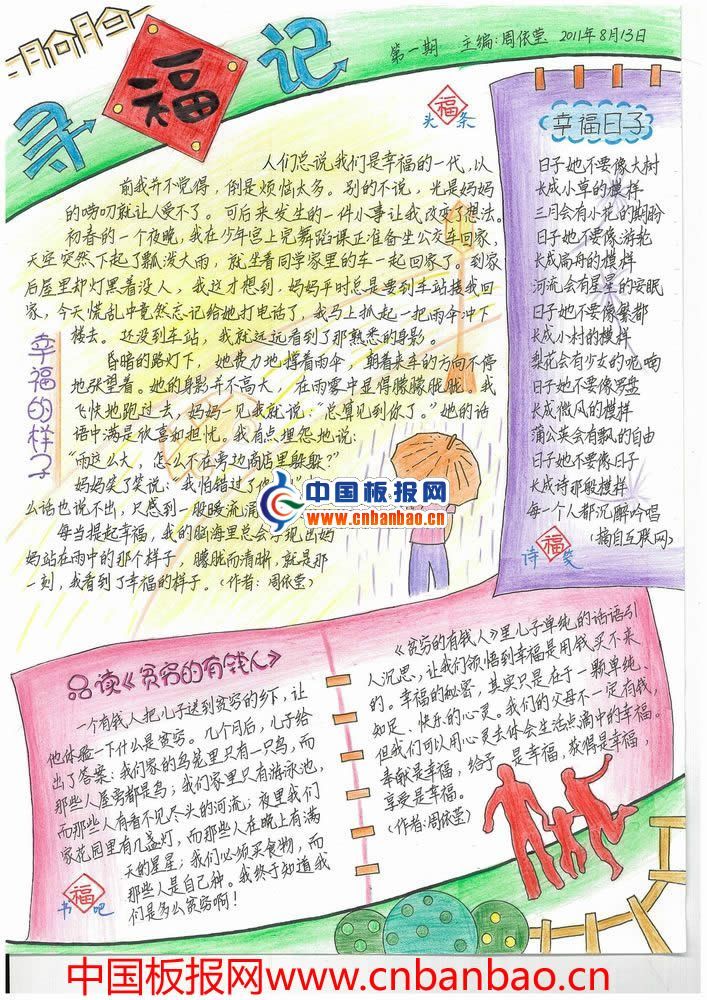 寻福记
第一期 主编:周依莹 2011年8月13日
福
头条
人们总说我们是幸福的一代,以
前我并不觉得,倒是烦恼太多。别的不说,光是妈妈
的唠叨就让人受不了。可后来发生的一件小事让我改变了想法。
初春的一个夜晚,我在少年宫上完舞蹈课正准备坐公交车回家,
天空突然下起了瓢泼大雨,就坐着同学家里的车一起回家了。到家
后屋里却灯黑着没人,我这才想到,妈妈平时总是要到车站接我回
家,今天慌乱中竟然忘记给她打电话了,我马上抓起一把雨伞冲下
楼去。还没到车站,我就远远看到了那熟悉的身影。
昏暗的路灯下,她费力地撑着雨伞,朝着来车的方向不停
地张望着。她的身影并不高大,在雨雾中显得朦朦胧胧。我
飞快地跑过去,妈妈一见我就说:“总算见到你了。”她的话
语中满是欣喜和担忧。我有点埋怨地说:
“雨这么大,怎么不在旁边商店里躲躲?”
妈妈笑了笑说:“我怕错过了
么话也说不出,只感到一股暖流涌
每当提起幸福,我的脑海里总会浮现出妈
妈站在雨中的那个样子,朦胧而清晰,就是那
一刻,我看到了幸福的样子。(作者:周依莹)
幸福的样子
幸福日子
日子她不要像大树
长成小草的模样
三月会有小花的期盼
日子她不要像游轮
长成扁舟的模样
河流会有星星的安眠
日子她不要像繁都
长成小村的模样
梨花会有少女的呢喃
日子她不要像罗盘
长成微风的模样
蒲公英会有飘的自由
日子她不要像日子
长成诗那般模样
每一个人都沉醉吟唱
(摘自互联网)
福
诗笺
中国板报网
www.cnbanbao.cn
品读《贫穷的有钱人》
一个有钱人把儿子送到贫穷的乡下,让
他体验一下什么是贫穷。几个月后,儿子给
出了答案:我们家的鸟笼里只有一只鸟,而
那些人屋旁都是鸟;我们家里只有游泳池,
而那些人有看不见尽头的河流;夜里我们
家花园里有几盏灯,而那些人在晚上有满
天的星星;我们必须买食物,而
那些人是自己种。我终于知道我
们是多么贫穷啊!
福
书吧
《贫穷的有钱人》里儿子单纯的话语引
人沉思,让我们领悟到幸福是用钱买不来
的。幸福的秘密,其实只是在于一颗单纯、
知足、快乐的心灵。我们的父母不一定有钱,
但我们可以用心灵去体会生活点滴中的幸福。
奉献是幸福,给予是幸福,获得是幸福,
享受是幸福。
(作者:周依莹)
中国板报网www.cnbanbao.cn